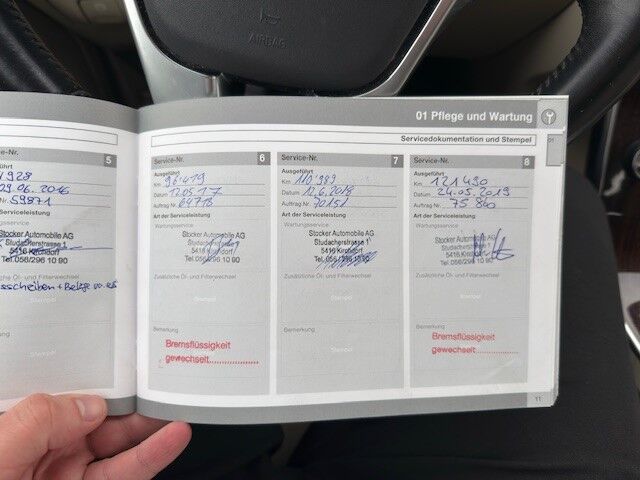 AIRBAG
01 Pflege und Wartung
Servicedokumentation und Stempel
01
Service-Nr. 5
29.06.2016
59871
Art der Serviceleistung
Stocker Automobile AG
Studacherstrasse 1
5416 Kirchdorf
Tel. 056/296 10 90
Zusätzliche Öl- und Filterwechsel
Stempel
Stempel
Service-Nr. 6
Ausgeführt
Km 96419
Datum 12.05.17
Auftrag Nr. 64718
Art der Serviceleistung
Wartungsservice
Stocker Automobile AG
Studacherstrasse 1
5416 Kirchdorf
Tel. 056/296 10 90
Zusätzliche Öl- und Filterwechsel
Stempel
Bemerkung
Bremsflüssigkeit
gewechselt
Service-Nr. 7
Ausgeführt
Km 110'989
Datum 12.6.2018
Auftrag Nr. 70151
Art der Serviceleistung
Wartungsservice
Stocker Automobile AG
Studacherstrasse 1
5416 Kirchdorf
Tel. 056/296 10 90
Zusätzliche Öl- und Filterwechsel
Stempel
Bemerkung
Stempel
Service-Nr. 8
Ausgeführt
Km 121'490
Datum 24.05.2019
Auftrag Nr. 75840
Art der Serviceleistung
Wartungsservice
Stocker Automobile AG
Studacherstrasse 1
5416 Kirchdorf
Tel. 056/296 10 90
Zusätzliche Öl- und Filterwechsel
Stempel
Bemerkung
Bremsflüssigkeit
gewechselt
11